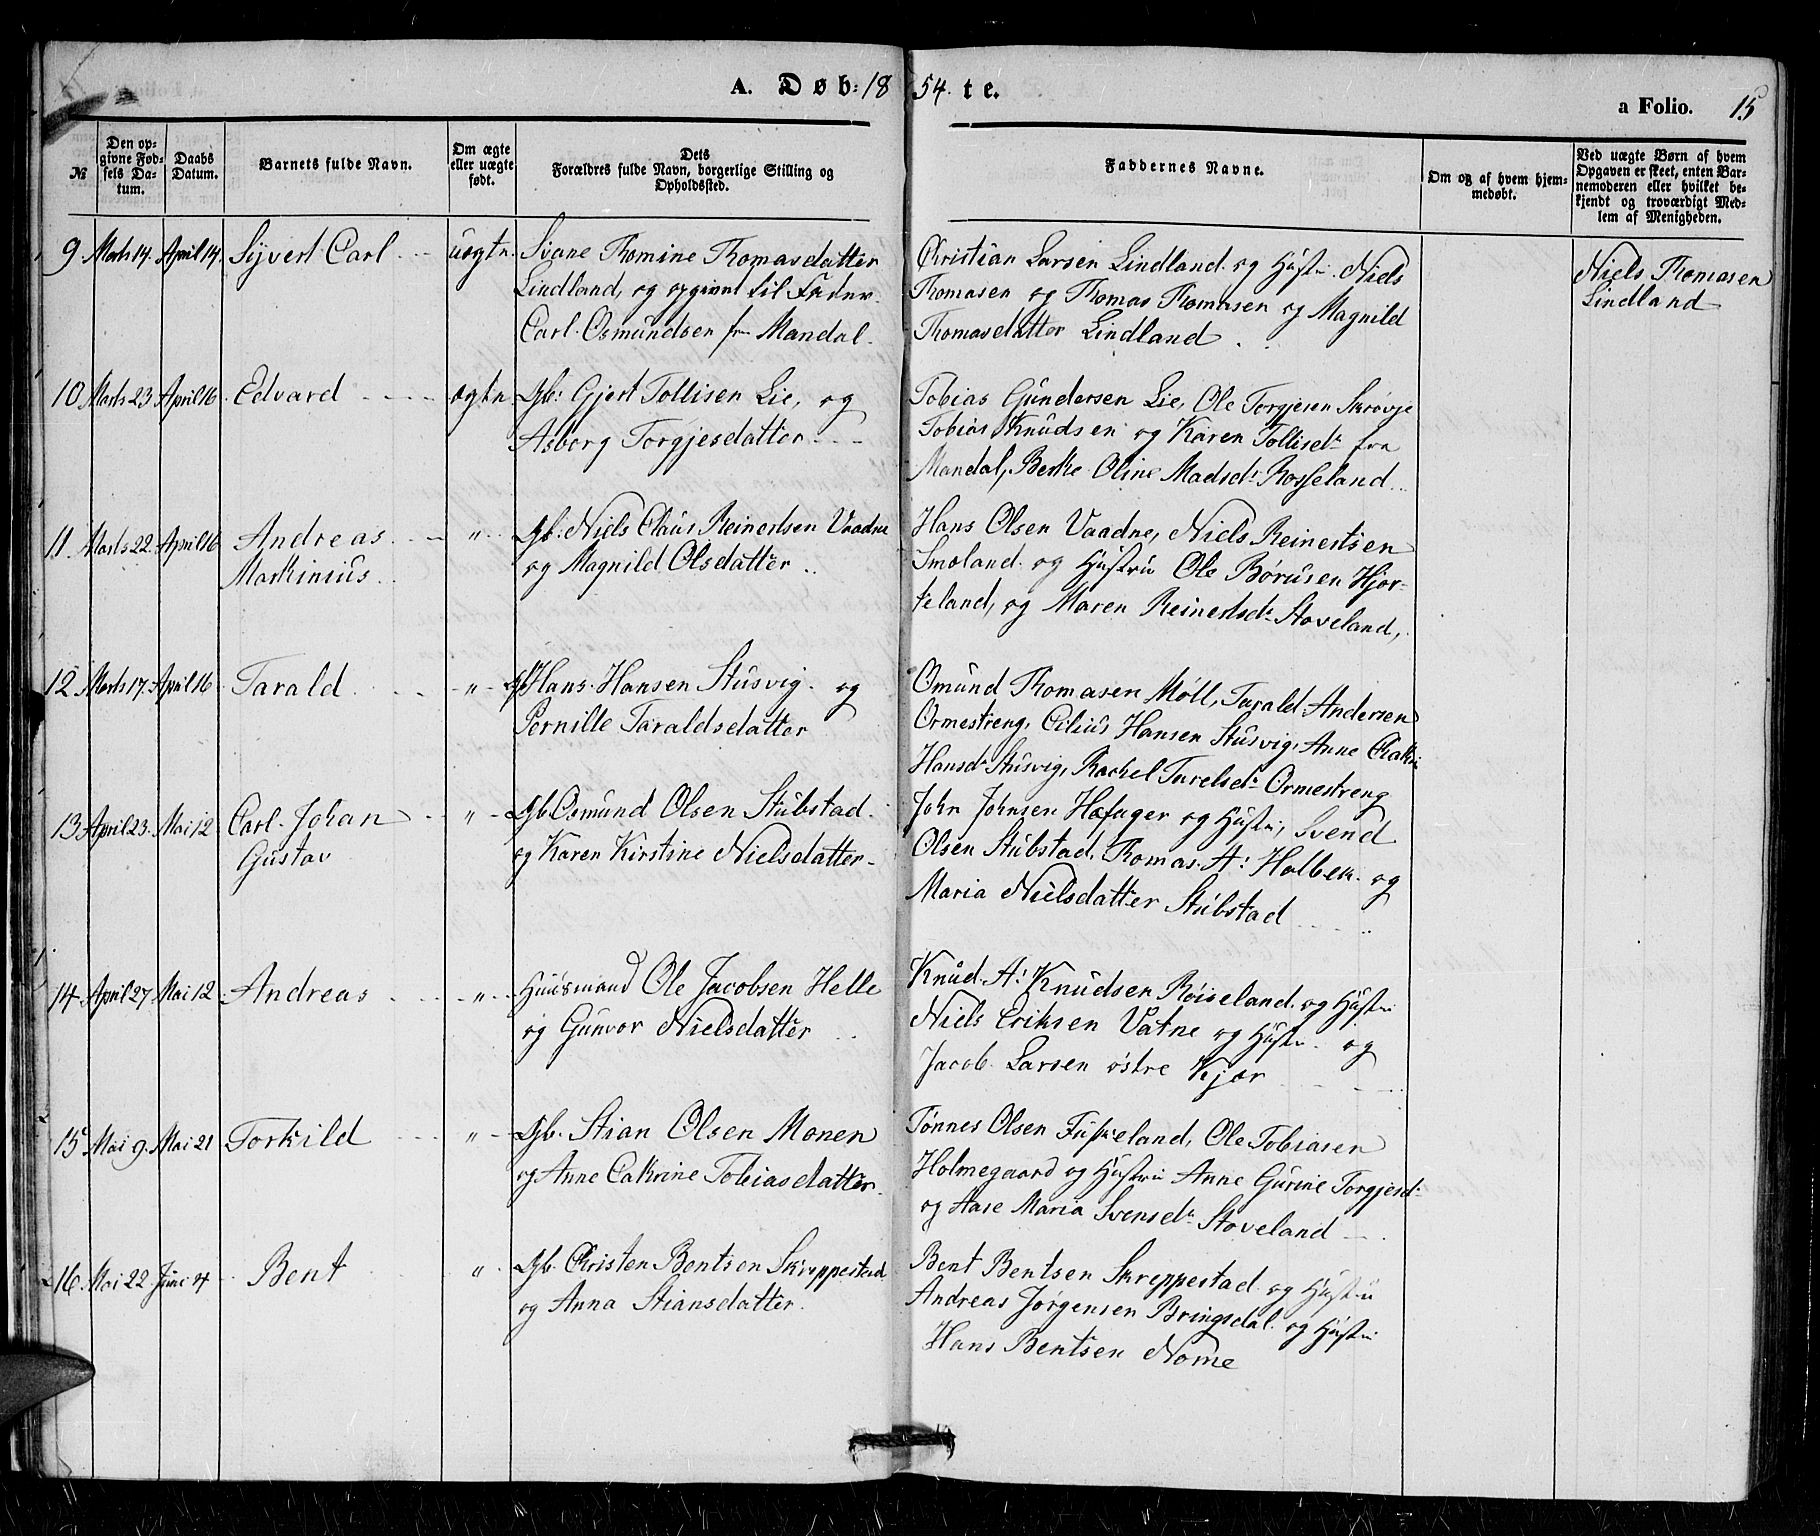 A. Døb: 1854. te.
a Folio. 15
№
Den op-
givne Fød-
sels Da-
tum.
Daabs
Datum.
Barnets fulde Navn.
Om ægte
eller uægte
født.
Dets
Forældres fulde Navn, borgerlige Stilling og
Opholdssted.
Faddernes Navne.
Om og af hvem hjem-
medøbt.
Ved uægte Børn af hvem
Opgaven er skeet, enten Bar-
nemoderen eller hvilket be-
kjendt og troværdigt Med-
lem af Menigheden.
9 Marts 14. April 14. Sijvert Carl uægte.
Siane Thomine Thomasdatter
Lindland, og opgivent til Fader
Carl Osmundsen fra Mandal.
Christian Larsen Lindland og Hustru. Niels
Thomasen og Thomas Thomasen og Magnild
Thomasdatter Lindland
Niels Thomasen
Lindland
10 Marts 23 April 16 Edvard ægte
Gb: Gjert Tollisen Lie, og
Asborg Torgjesdatter
Tobias Gundersen Lie, Ole Torgjesen Skrøvje
Tobias Knudsen og Karen Tollisdr fra
Mandal, Berthe Oline Madsdr Rosseland
11. Marts 22. April 16 Andreas
Mathinius "
Gb. Niels Claus Reinertsen Vaadne
og Magnild Olsdatter
Hans Olsen Vaadne, Niels Reinertsen
Smoland og Hustru Ole Børusen Hjor-
teland, og Maren Reinertsdr Stoveland,
12 Marts 17. April 16 Tarald "
Gb Hans Hansen Stusvig og
Pernille Taraldsdatter
Omund Thomasen Möll, Tarald Andersen
Ormestreng, Cilius Hansen Stusvig, Anne Cathri
Hansdr Stusvig, Rachel Tarelsdr Ormestreng
13 April 23. Mai 12 Carl Johan
Gustav "
Gb Osmund Olsen Stubstad
og Karen Kirstine Nielsdatter
John Johnsen Hæfager og Hustru, Svend
Olsen Stubstad, Thomas A: Holbek og
Maria Nielsdatter Stubstad
14. April 27 Mai 12 Andreas "
Huusmand Ole Jacobsen Helle
og Gunvor Nielsdatter
Knud A: Knudsen Røiseland og Hustru
Niels Eriksen Vatne og Hustru og
Jacob Larsen østre Kjær
15 Mai 9. Mai 21 Torkild "
Gb. Stian Olsen Monen
og Anne Cathrine Tobiasdatter
Tønnes Olsen Fuskeland, Ole Tobiasen
Holmegaard og Hustru Anne Gurine Torgjesdr
og Aase Maria Svensdr Stoveland
16. Mai 22 Juni 4 Bent "
Gb. Christen Bentsen Skreppestad
og Anna Stiansdatter.
Bent Bentsen Skreppestad og Hustru
Andreas Jørgensen Bringsdal og Hustru
Hans Bentsen Nome